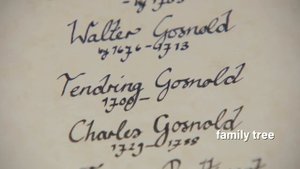 - by 1703
Walter Gosnold
by 1676 - 1713
Tendring Gosnold
1700 -
Charles Gosnold
1729 - 1788
family tree